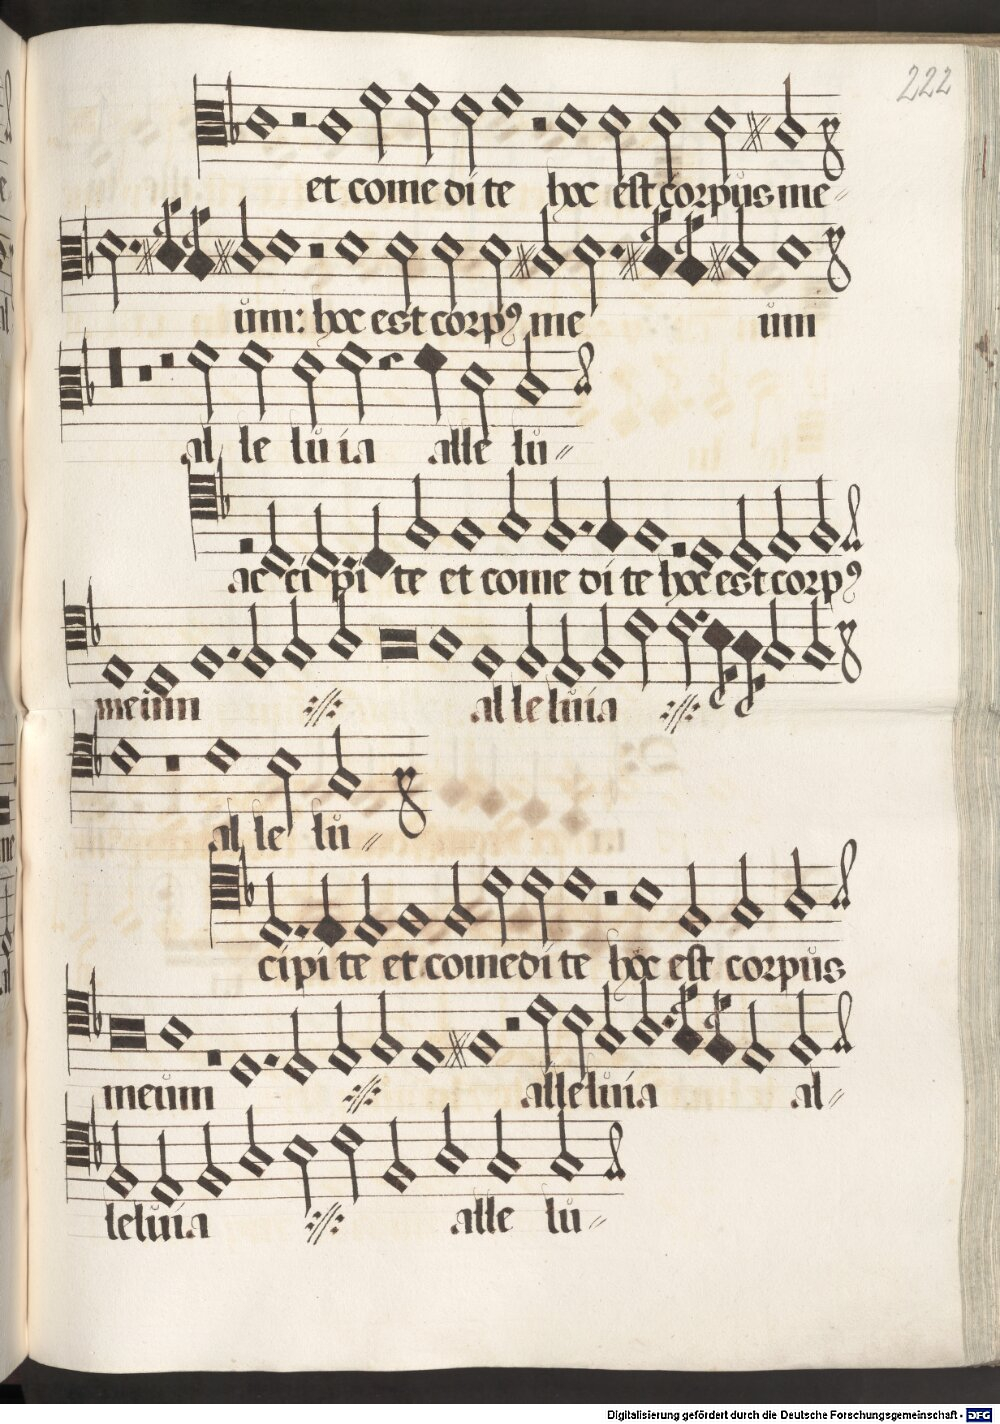 222
et come di te hoc est corpus me-
um: hoc est corpꝰ me um
al le lu ia alle lu-
ac ci pi te et come di te hoc est corpꝰ
meum al le luia
al le lu-
cipi te et comedi te hoc est corpus
meum alleluia al-
leluia alle lu-
Digitalisierung gefördert durch die Deutsche Forschungsgemeinschaft - DFG